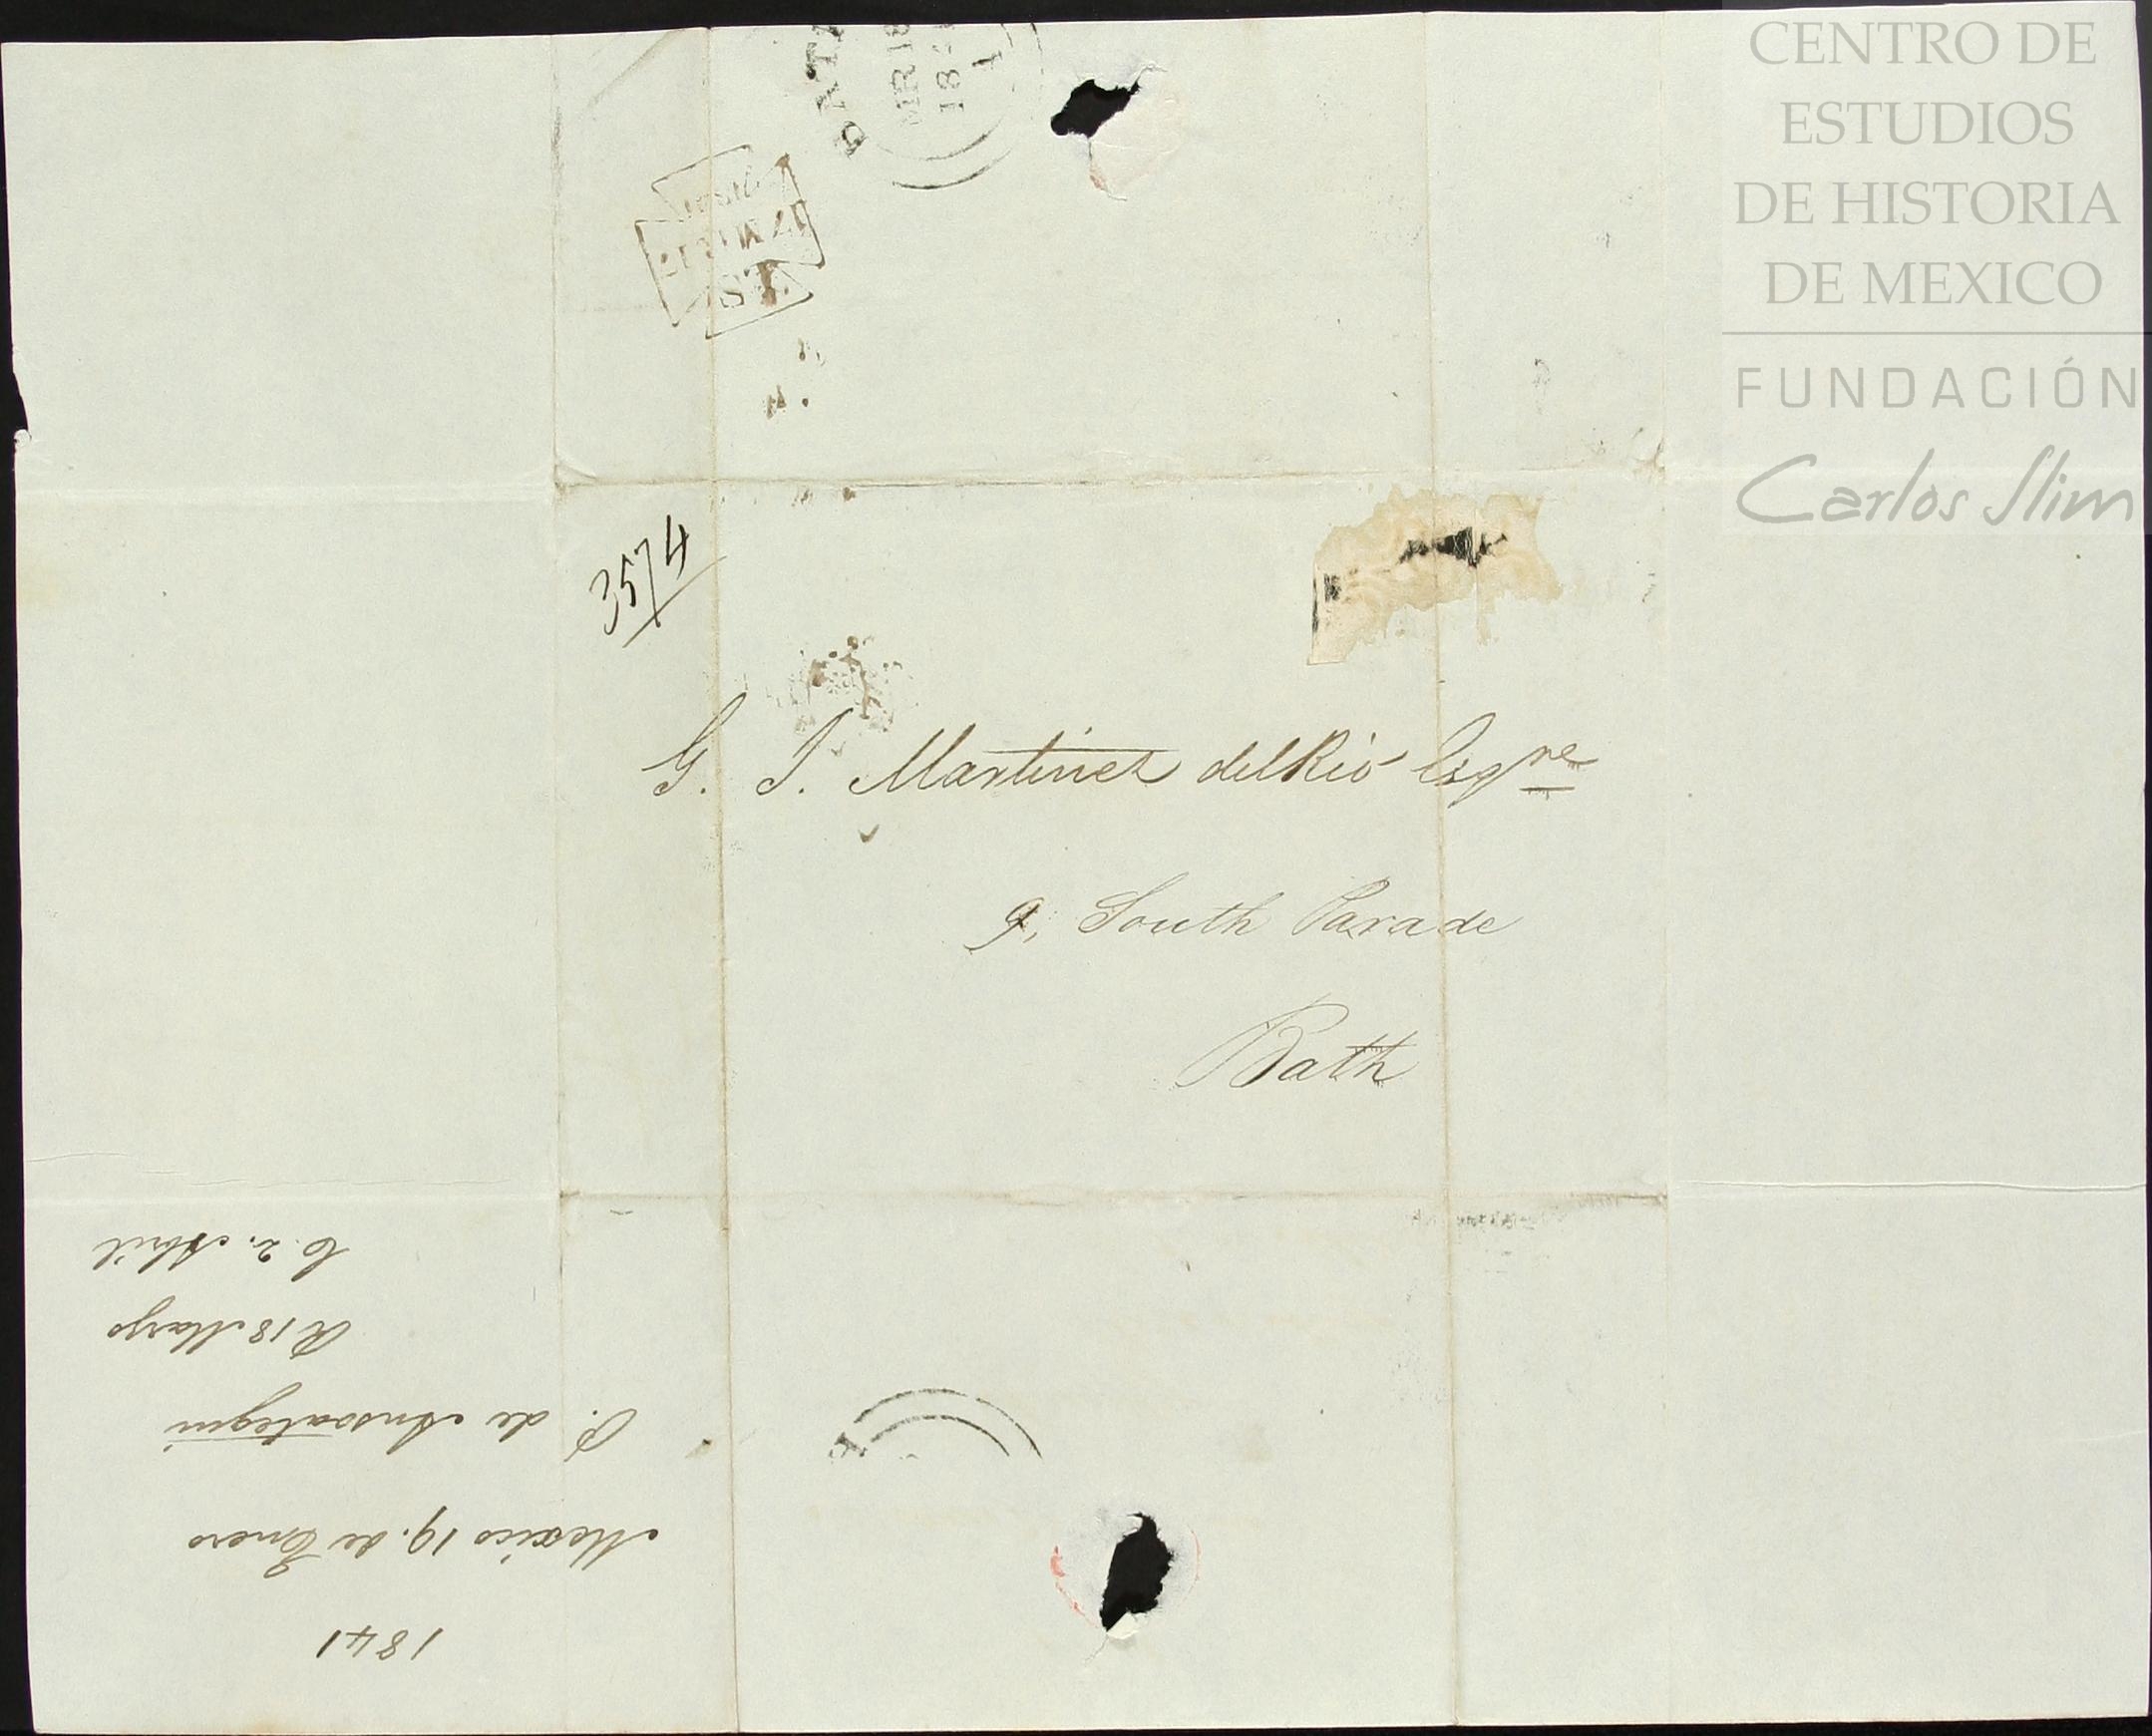 CENTRO DE
ESTUDIOS
DE HISTORIA
DE MEXICO
FUNDACIÓN
Carlos Slim
BATH
MR 18
3574
G. J. Martinez del Rio Esqre
9, South Parade
Bath
1841
Mexico 19. de Enero
P. de Ansoategui
R 18 Marzo
C. 2. Abril